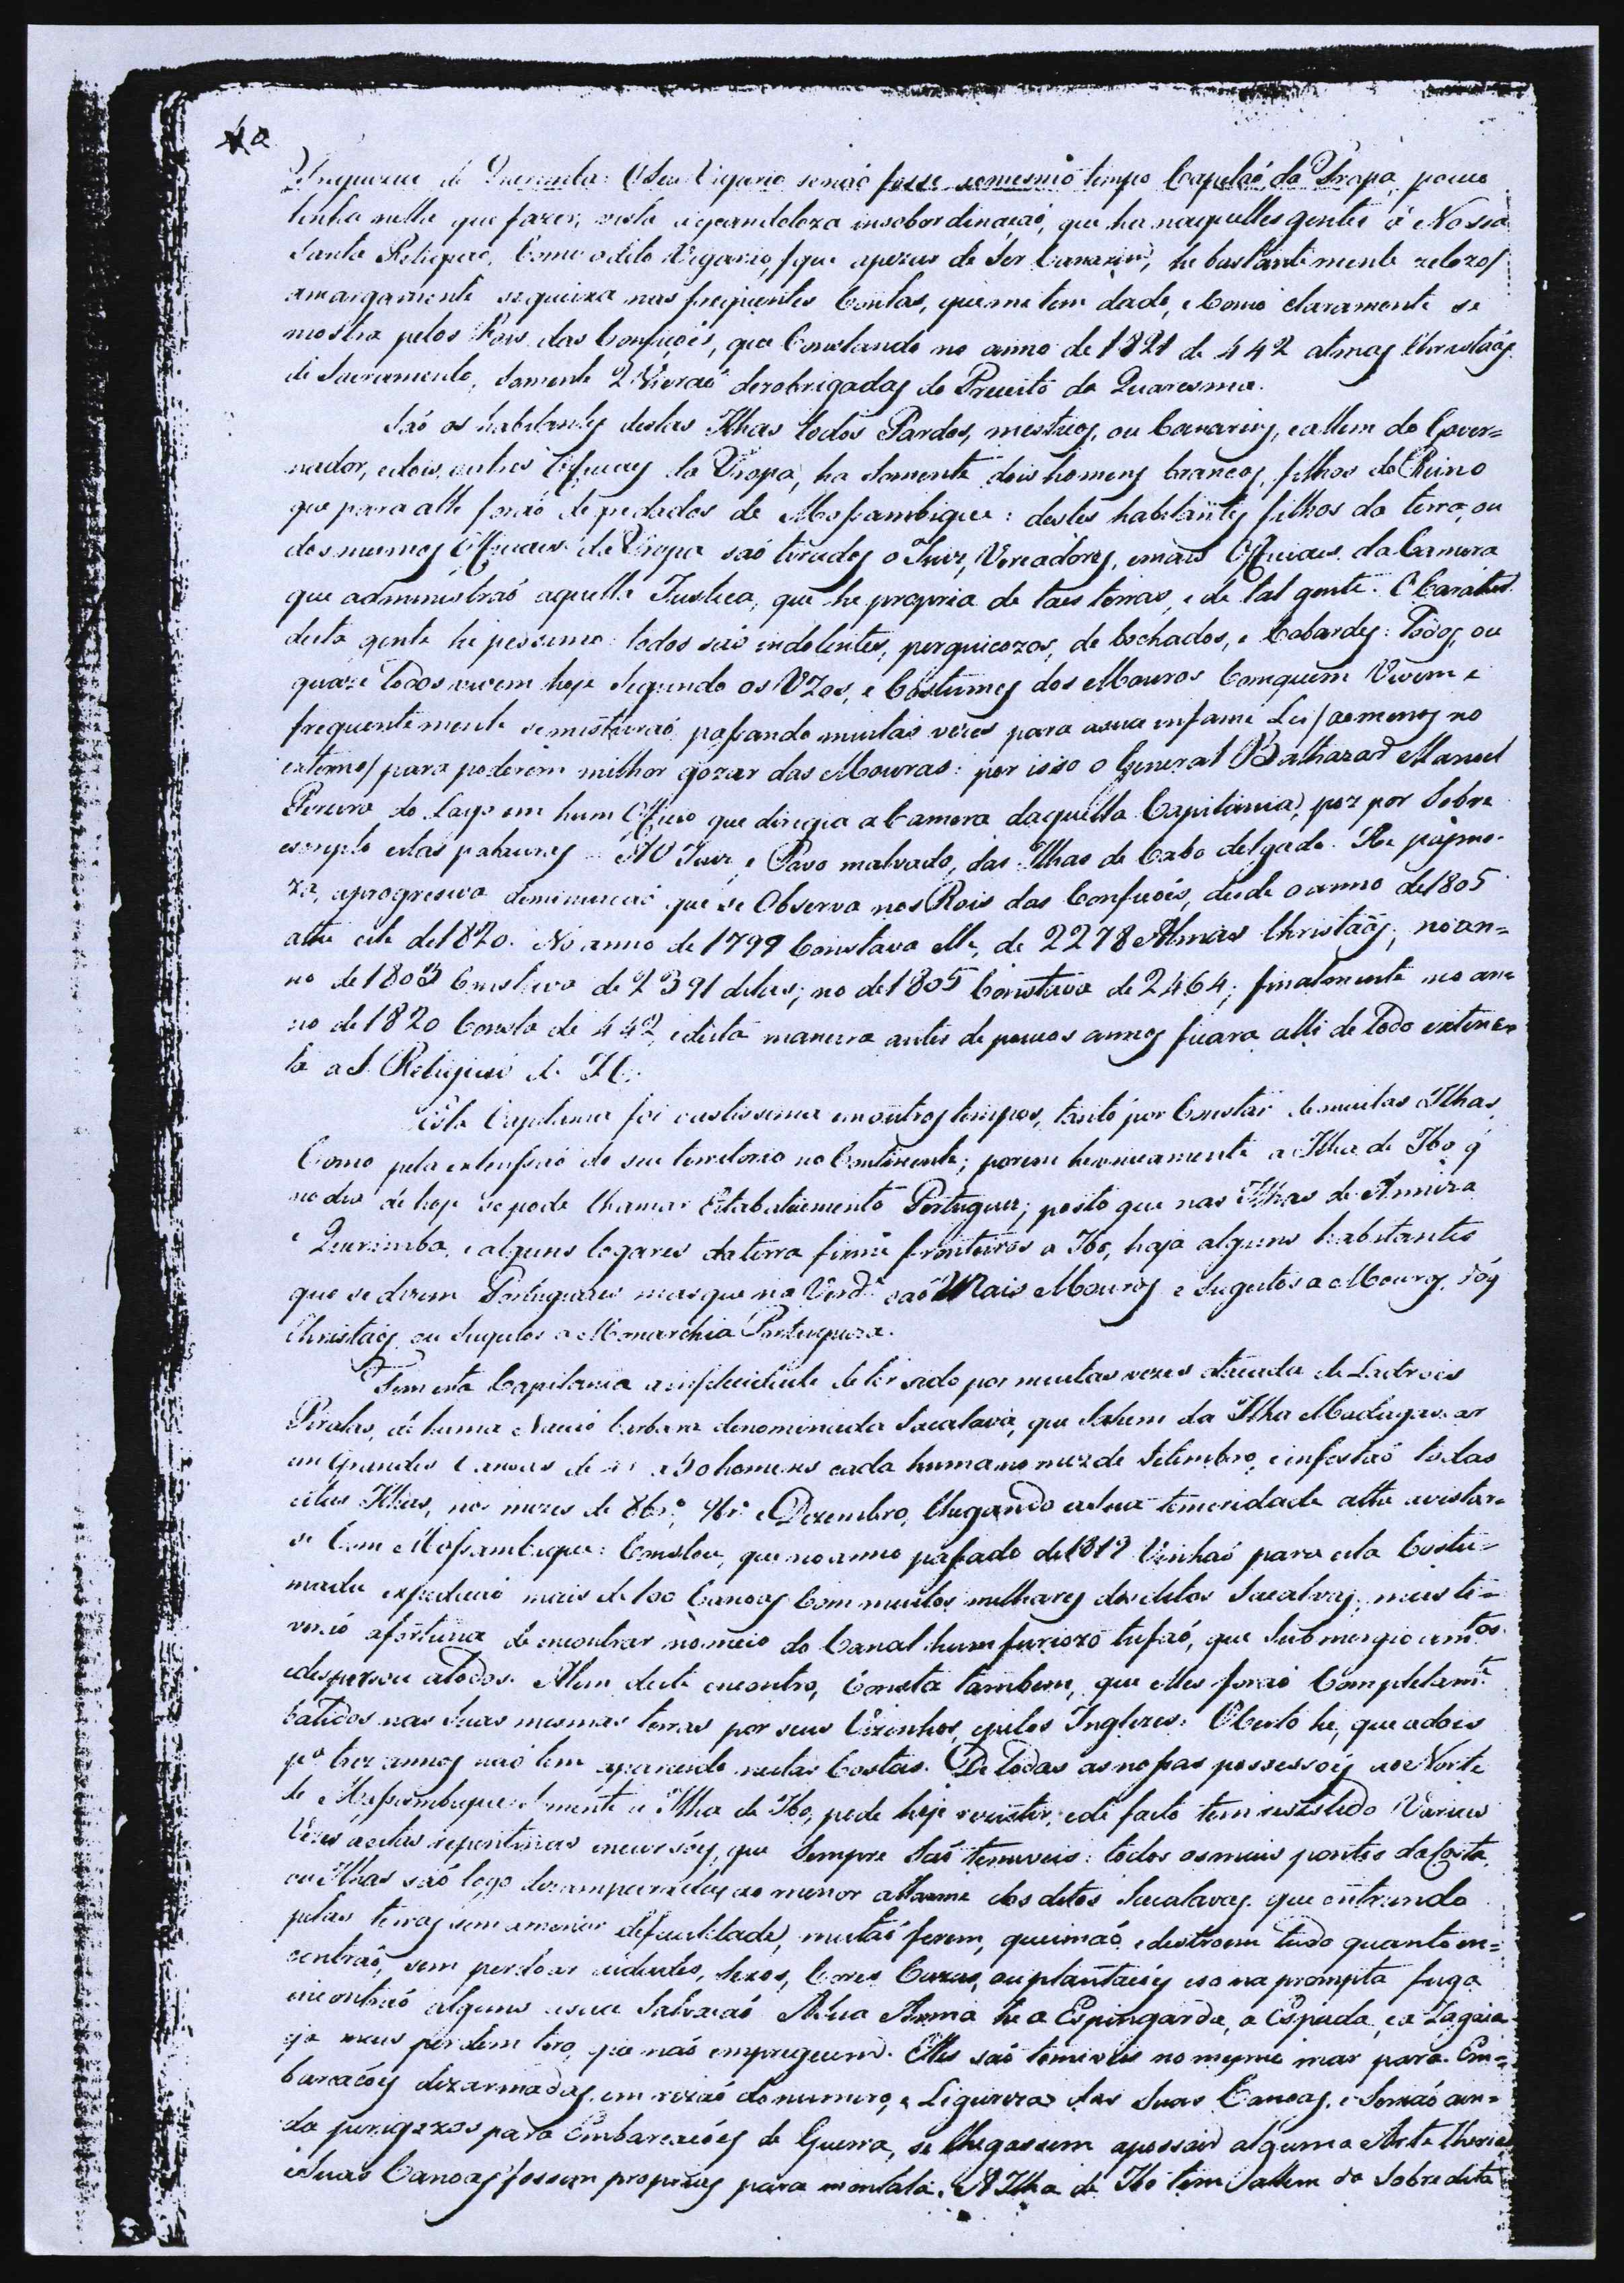 Freguezia de Querimba: O Seu Vigario senaõ fosse aomesmo tempo Capelaõ da Tropa, pouco
tinha nella que fazer, vista agrandeloza insobordinaçaõ, que ha naquelles gentes á Nossa
Santa Religiaõ, Como odito Vigario, /que apezar de Ser Canarim, he bastantimente zelozo/
amargamente sequeixa nas freqüentes Contas, queme tem dado, e Como claramente se
mostra pelos Rois das Confiçoẽs, que Constando no anno de 1821 de 442 almas Christaãs
de Sacramento, Somente 2 Vieraõ dezobrigadas do Preceito da Quaresma.
Saõ os habitantes destas Ilhas todos Pardos, mestiços, ou Canarins, eallem do Gover=
nador, edois outros Officiaes da Tropa, ha Somente dois homens brancos, filhos do Reino
que para alli foraõ degredados de Mossambique: destes habitantes filhos da terra, ou
dos mesmos Officiaes da Tropa saõ tirados o Juiz, Vereadores, emais Officiaes da Camera
que administraõ aquella Justiça, que he propria de taes terras, e de tal gente. O Carater
desta gente he pessimo: todos saõ indolentes, perguicozos, debochados, e Cobardes: Todos, ou
quaze Todos vivem hoje Segundo os Uzos, e Costumes dos Mouros Comquem Vivem e
frequentemente semisturaõ passando muitas vezes para asua infame Lei /aomenos no
externo/ para poderem milhor gozar das Mouras: por isso o General Balthazar Manoel
Pereira do Lago em hum Officio que dirigia aCamera daquella Capitania, poz por Sobre
escripto estas palavras = Ao Juiz, e Povo malvado, das Ilhas de Cabo delgado. He pasmo-
za, aprogresiva deminuiçaõ que se Observa nos Rois das Confiçoẽs, desde oanno de 1805
athe este de 1820. No anno de 1799 Constava Elle, de 2278 Almas Christaãs; noan=
no de 1803 Constava de 2391 ditas; no de 1805 Constava de 2464; finalmente no an=
no de 1820 Consta de 442, edesta maneira antes de poucos annos ficara alli de Todo extinc=
ta a S. Religiaõ de
Esta Capitania foi vastissima emoutros tempos, tanto por Constar demuitas Ilhas,
Como pela extensaõ do seu territorio no Continente; porem heunicamente a Ilha de Ibo q̃
no dia de hoje se pode Chamar Estabalicimento Portuguez; posto que nas Ilhas de
e Querimba, e alguns logares daterra firme fronteiros a Ibo, haja alguns habitantes
que se dizem Portuguezes mas que na Verd.e saõ Mais Mouros e Sugeitos a Mouros, dóq̃
Christaõs ou Sugeitos a Monarchia Portugueza.
Tem esta Capitania ainfilicidade deter sido por muitas vezes atacada de Ladroẽs
Piratas, de huma Naçaõ barbara denominada Sacalava, que Sahem da Ilha Madagascar
em Grandes Canoas de a 50 homens cada huma no mez de Setembro, e infestaõ todas
estas Ilhas, nos mezes de 8br.o, 9br.o e Dezembro, Chegando asua temeridade athe avistar=
se Com Mossambique: Constou, que noanno passado de 1819 Vinhaõ para esta Costu=
mada expediçaõ mais de 100 Canoas Com muitos milhares dos ditos Sacalvas, mas ti=
veraõ afortuna de encontrar nomeio do Canal hum furiozo tufaõ, que Submergio am.tos
edispersou atodos. Alem deste encontro, Consta tambem, que elles foraõ Completam.te
batidos nas Suas mesmas terras por seus Vizinhos, epelos Inglezes: O Certo he, que adois
p.a tres annos naõ tem aparecido nestas Costas. De Todas as nossas possessoẽs ao Norte
de Mossambique Somente a Ilha de Ibo, pode hoje rezistir, ede facto tem rezistido Varias
Vezes aestas repentinas incursoẽs, que Sempre Saõ temiveis: todos osmais pontos daCosta,
ou Ilhas saõ logo dezamparados ao menor allarme dos ditos Sacalavas, que entrando
pelas terras sem amenor deficuldade, mataõ ferem, queimaõ edestroem tudo quanto en=
contraõ, sem perdoar aidades, Sexos, Cores Cazas, ouplantaçoẽs eso na prompta fuga
encontraõ alguns asua Salvaçaõ. ASua Arma he a Espingarda, a Espada, e a Zagaia
perdem tiro, que naõ empreguem. Elles saõ temiveis no mesmo mar para Em=
barcaçoẽs dezarmadas, em rezaõ donumero, e Ligureza das Suas Canoas, e Seriaõ ain=
da perigozos para Embarcaçoẽs de Guerra, se Chegassem apossuir alguma Artelheria
eSuas Canoas fossem proprias para montala. A Ilha de Ibo tem /allem da Sobredita